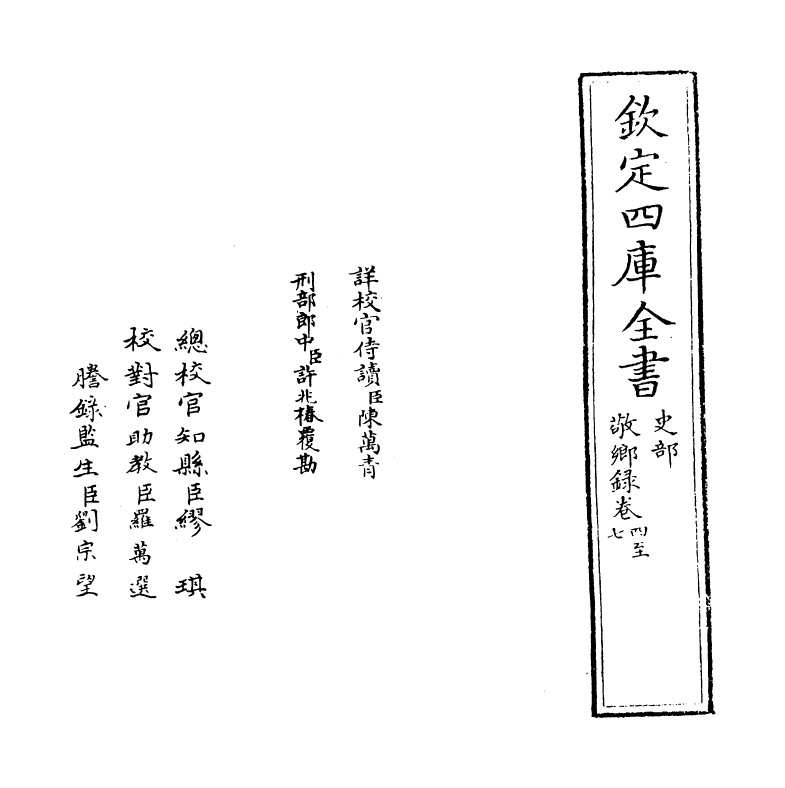 欽定四庫全書
史部
敬鄉録卷四至七
詳校官侍讀臣陳萬青
刑部郎中臣許兆椿覆勘
總校官知縣臣繆琪
校對官助教臣羅萬選
謄錄監生臣劉宗望